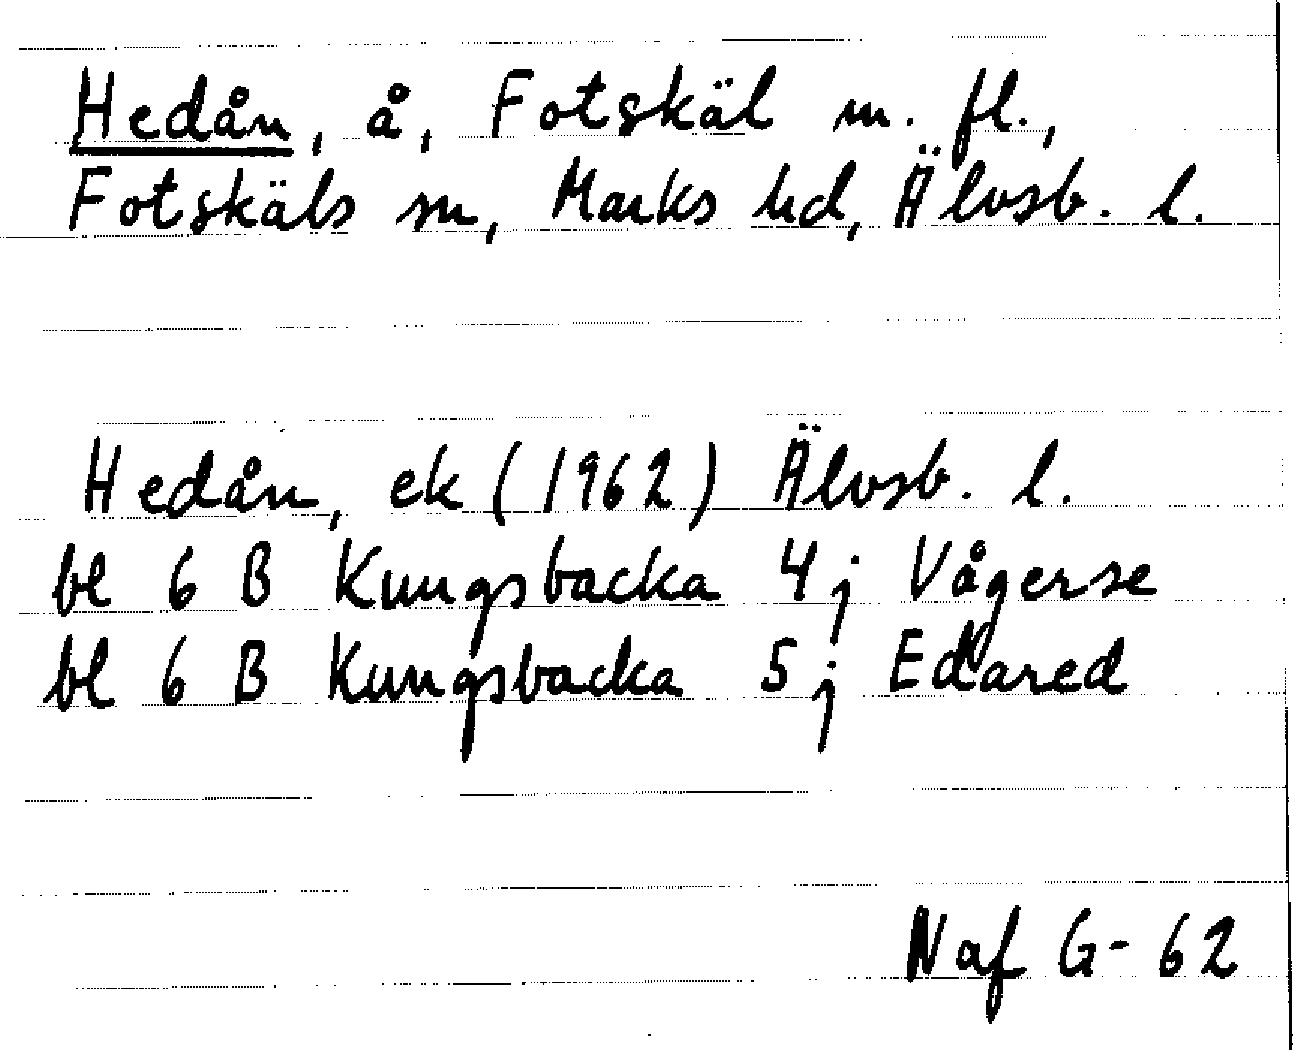 Hedån, å, Fotskäl m. fl.,
Fotskäls sn, Marks hd, Älvsb. l.
Hedån, ek (1962) Älvsb. l.
bl 6 B Kungsbacka 4j Vågerse
bl 6 B Kungsbacka 5j Edared
Naf G-62